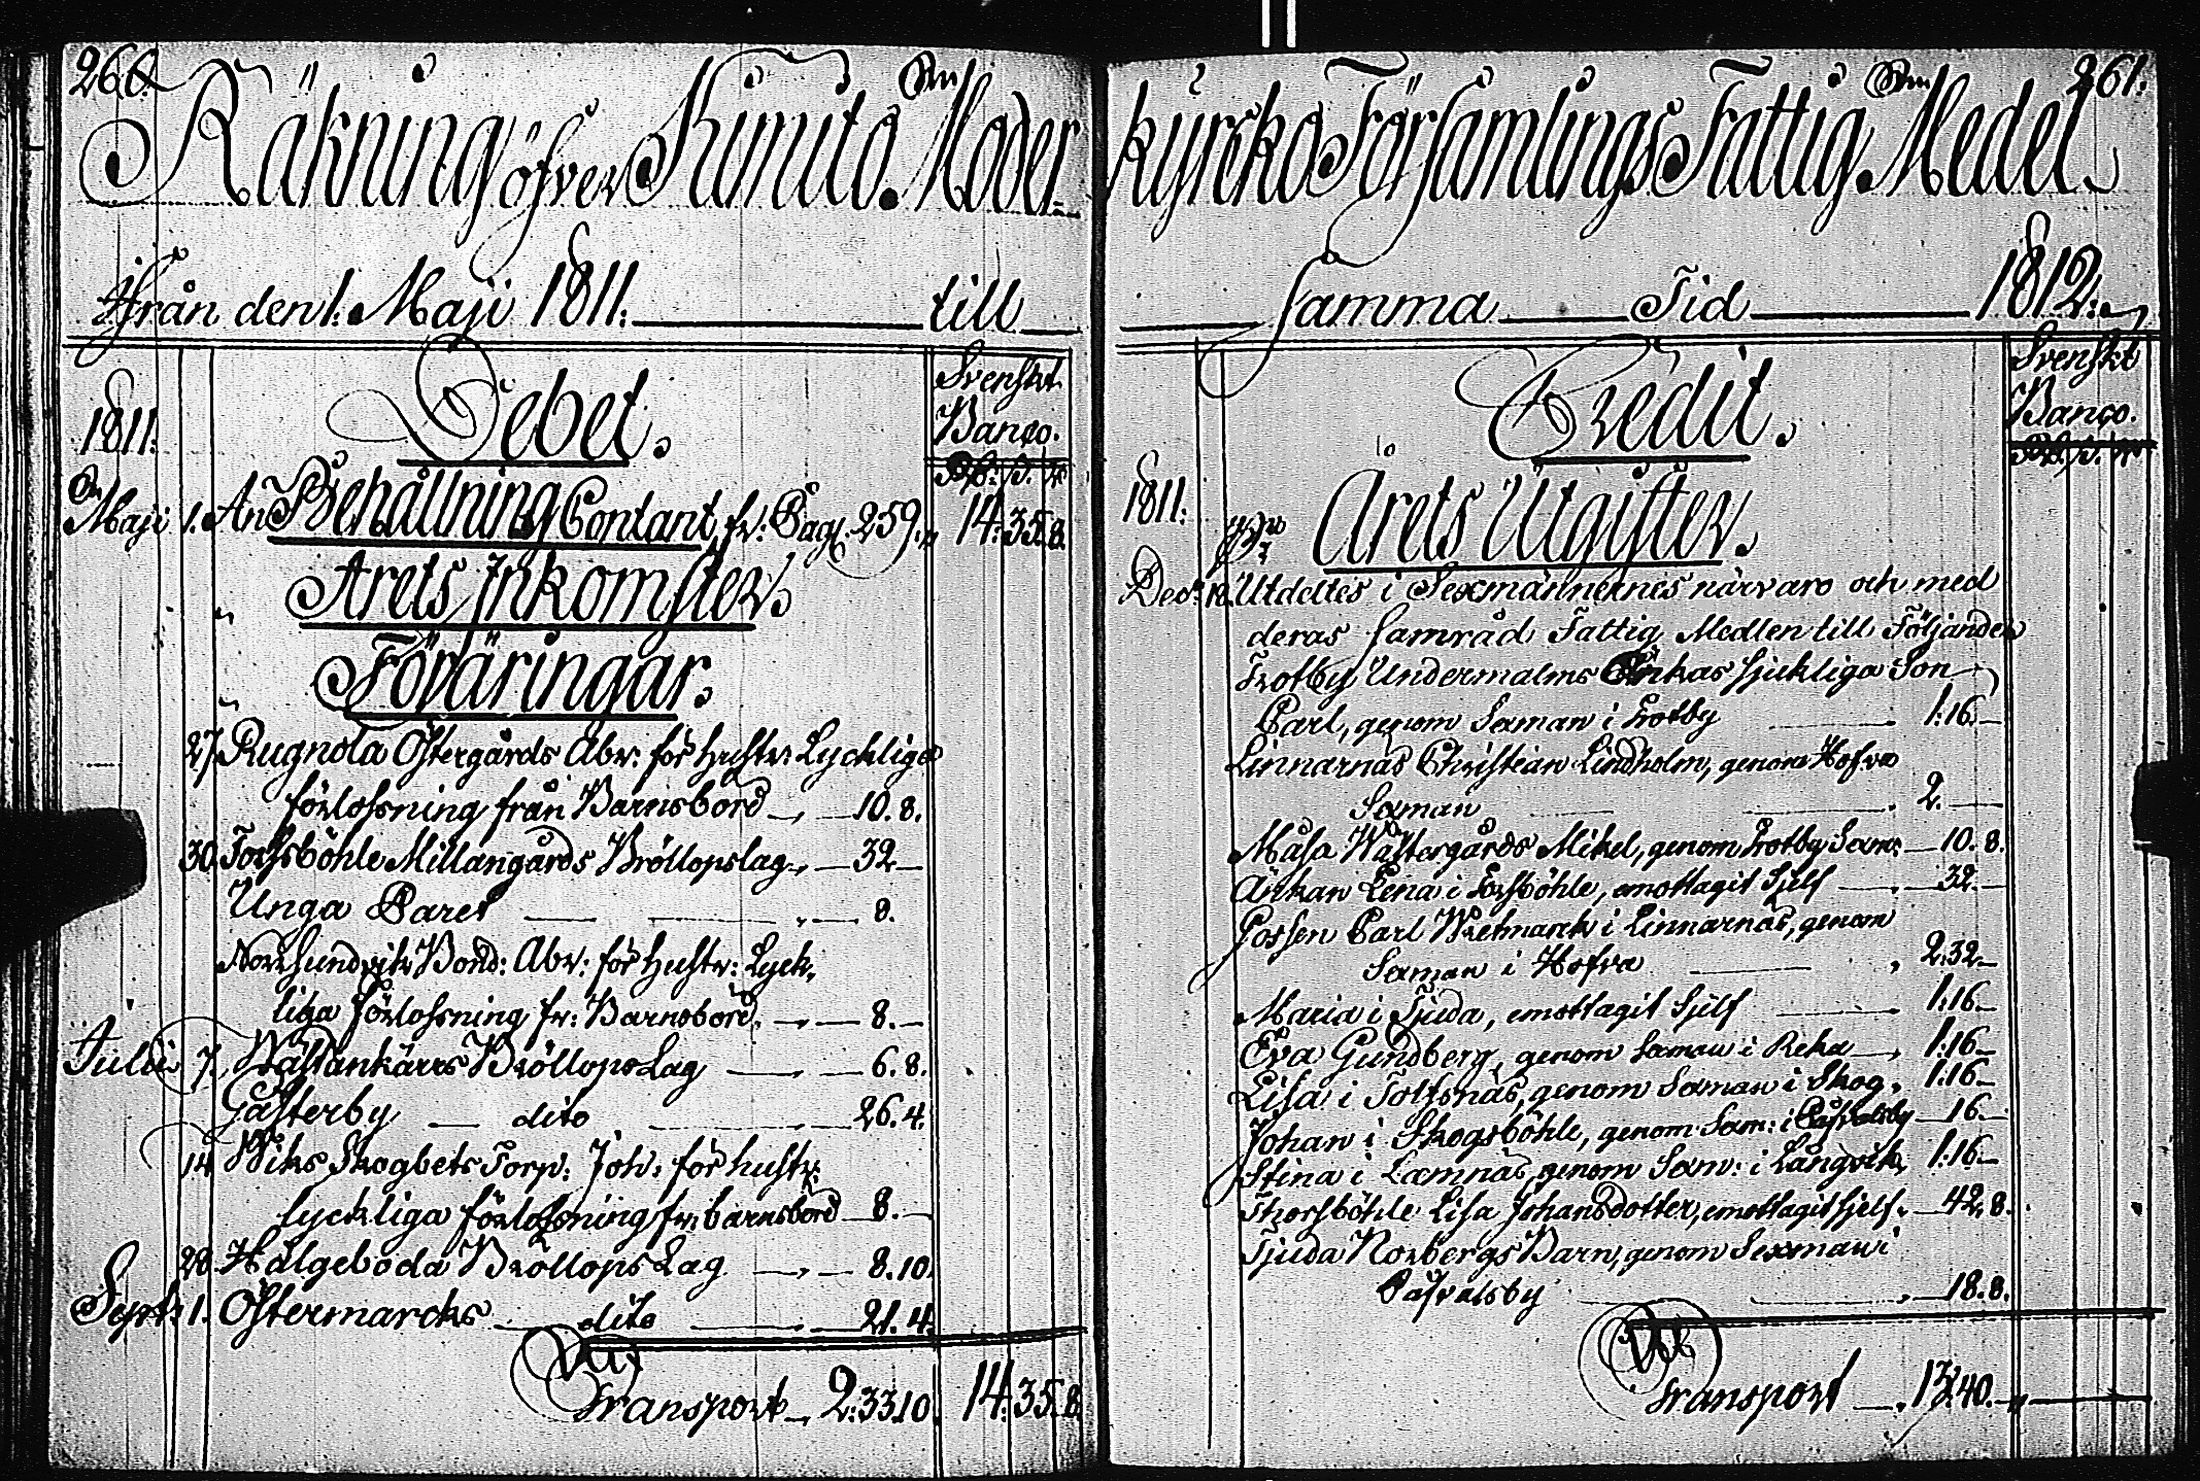 260.
Räkning öfver Kimito Moder
ifrån den 1. Maji 1811. till
Debet.
Svenskt
Banco.
1811.
Maji 1. An Behållning Contant, fr: Pag. 259. 14. 35. 8.
Årets Inkomster.
Föräringar.
27. Rugnola Östergårds Abr: för hustr: Lyckliga
förlossning från Barnsbörd 10. 8.
30. Forssböhle Millangårds Bröllopslag 32
Unga Paret 8.
Norrsundvik Bond: Abr: för hustr: Lyck,
liga förlossning fr: Barnsbörd 8.
Julii 7. Wästankärrs Bröllops Lag 6. 8.
Gästerby dito 26. 4.
14 Wiks Skogbets Torp: Joh: för hustr:
lyckliga förlossning fr: barnsbörd 8.
28. Hålgeboda Bröllops Lag 8. 10.
Sept: 1. Östermarcks dito 21. 4.
Transport 2. 33. 10. 14. 35. 8
261.
kyrcko Församlings Fattig Medel.
samma Tid 1812.
Credit.
Svenskt
Banco.
1811.
Årets Utgifter.
Dec: 18. Utdeltes i Sexmännernes närvaro och med
deras samråd Fattig Medlen till Följande
Trotby Undermalms Enkas sjukliga Son
Carl, genom Sexman i Trotby 1. 16.
Linnarnäs Christian Lindholm, genom Hofva
Sexman 2.
Måsa Wästergårds Mikel, genom Trotby Sexm: 10. 8.
Änkan Lena i Forsböhle, emottagit Sjelf 32.
Gossen Carl Wretmarck i Linnarnäs, genom
Sexman i Hofva 2. 32
Maria i Tjuda, emottagit Sjelf 1. 16
Eva Gundberg, genom Sexman i Reka 1. 16
Lisa i Tolfsnäs, genom Sexman i Skog. 1. 16
Johan i Skogsböhle, genom Sexm: i Påfvalsby 16.
Stina i Lamnäs, genom Sexm: i Långvik, 1. 16
Thorsböhle Lisa Johansdotter, emottagit sjelf. 42. 8.
Tjuda Norbergs Barn, genom Sexman i
Påfvalsby 18. 8.
Transport 13. 40.